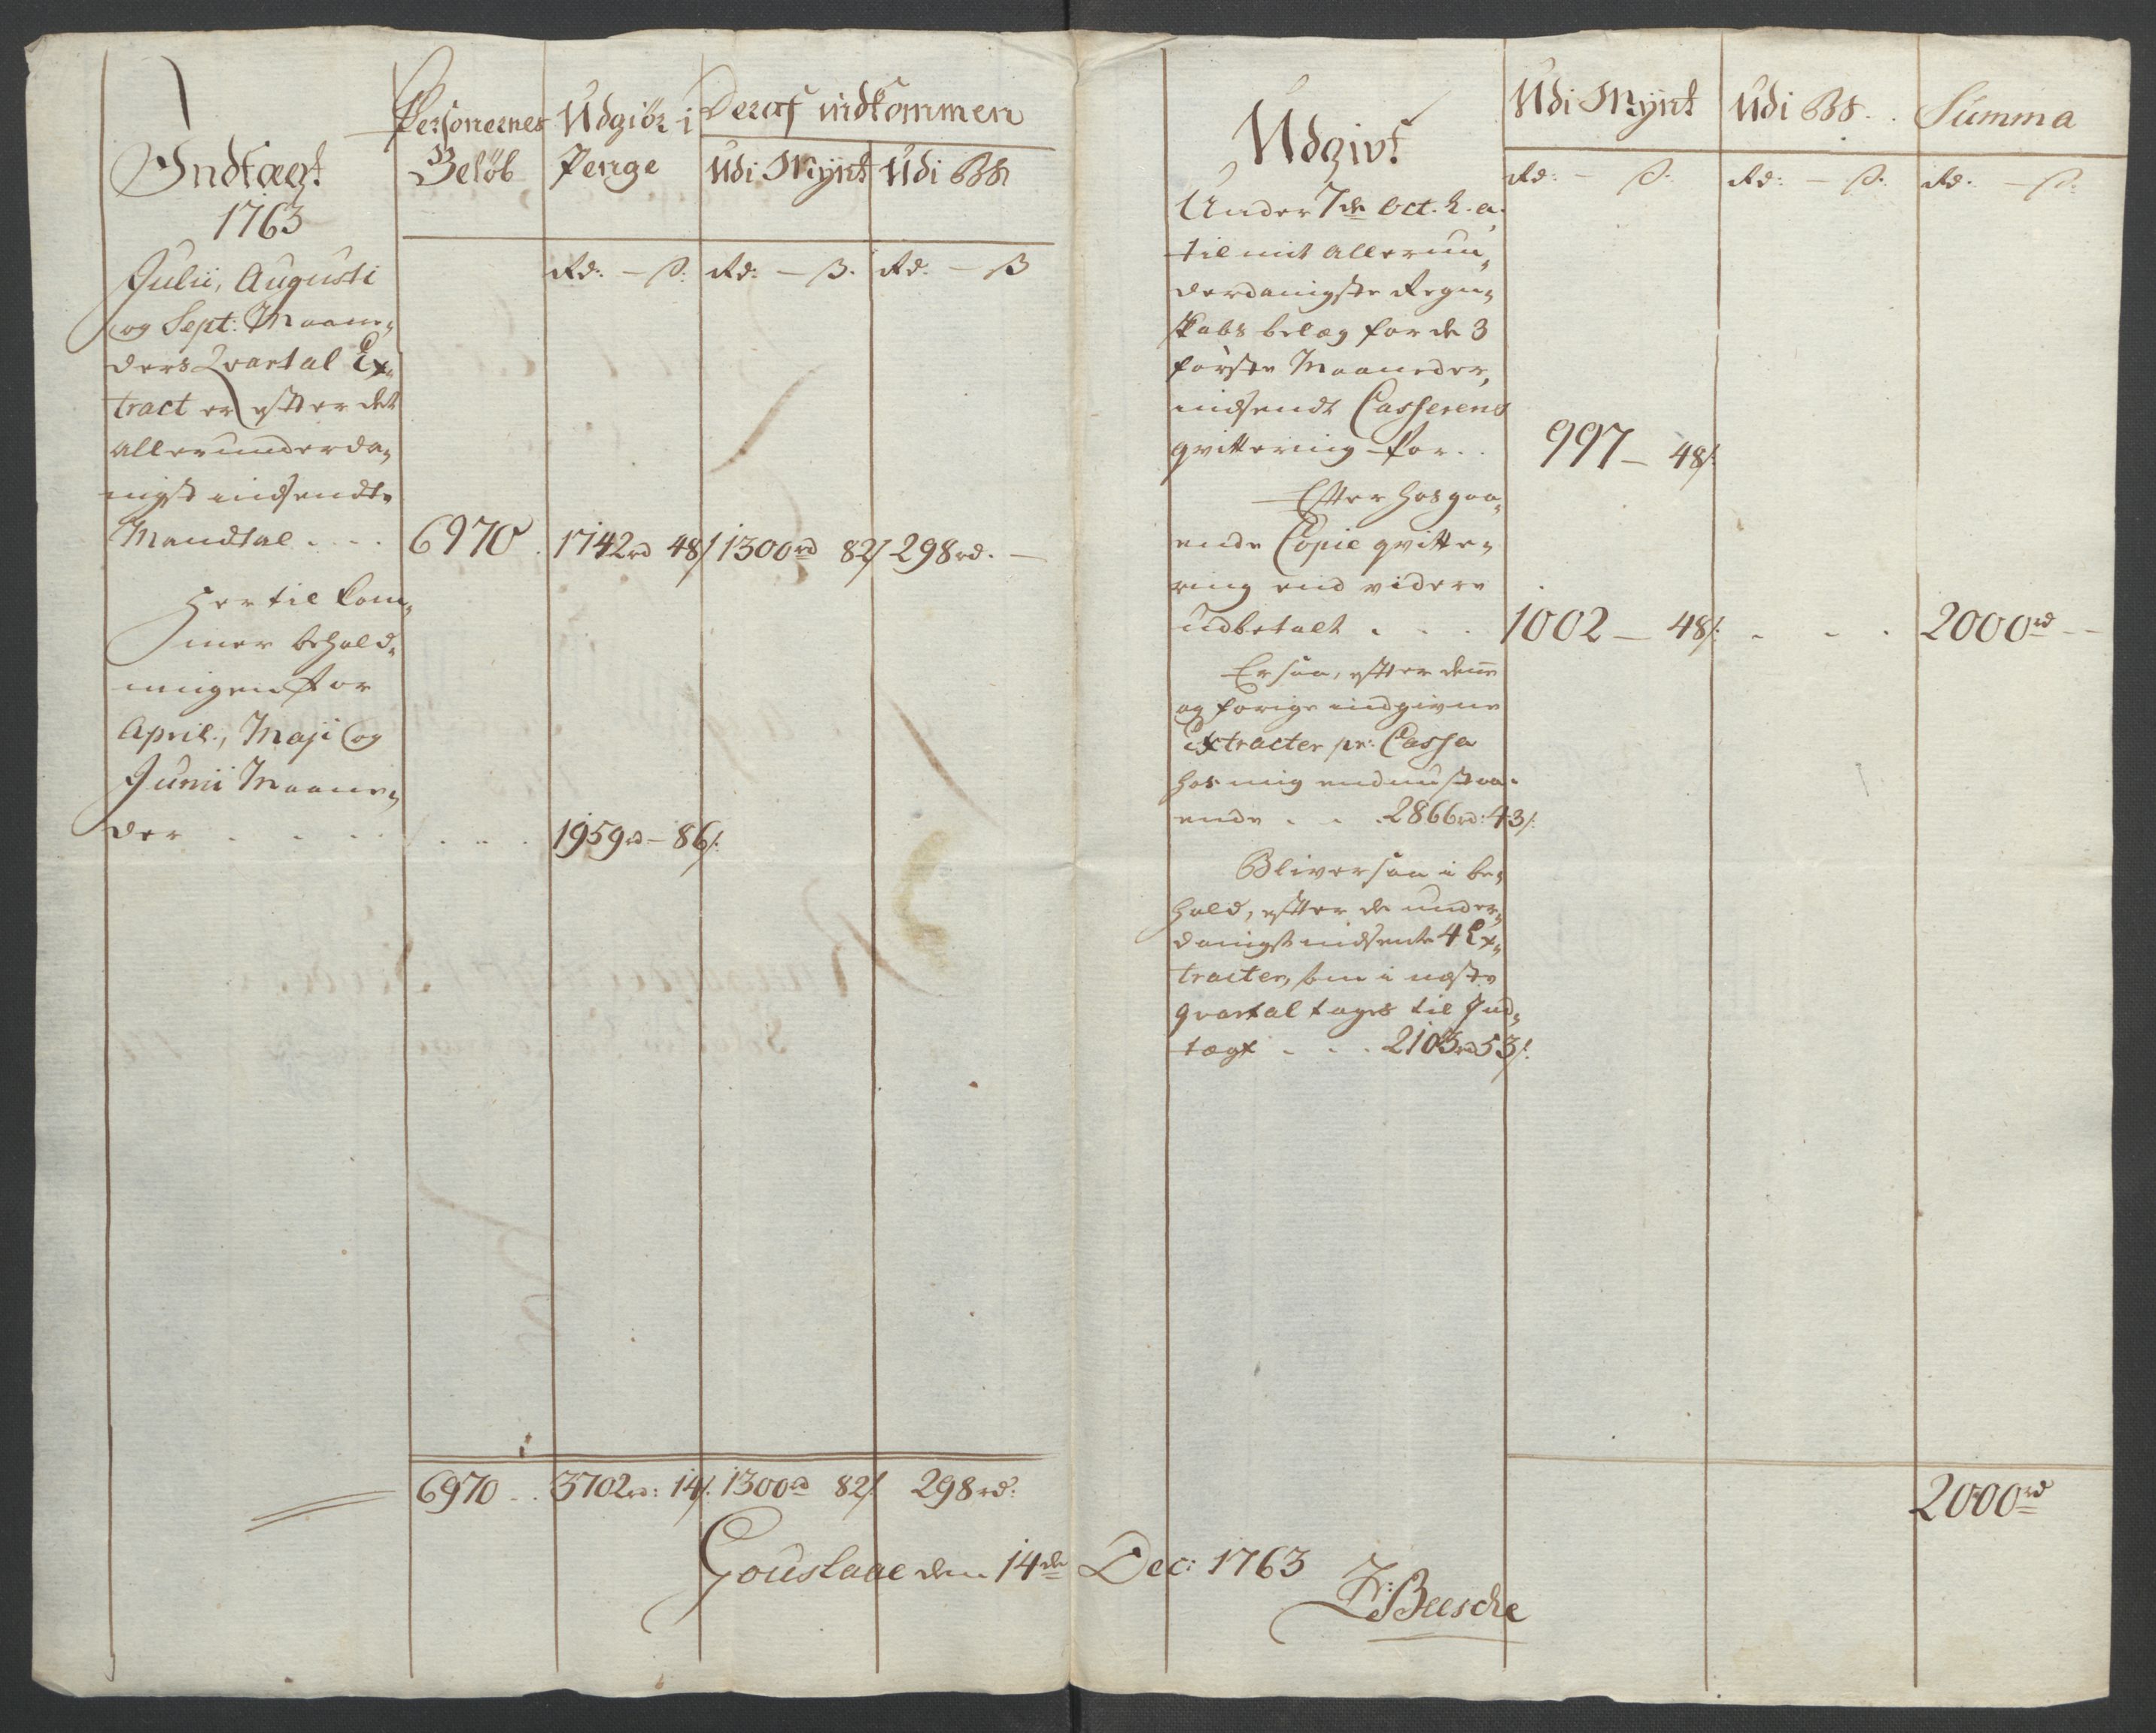 Indtægt
1763
Personernes Beløb
Udgiör i Penge
Deraf indkommen
Udi Mynt
Udi BS
Rd: — ß.
Rd: — ß.
Rd. — ß
Julii, Augusti
og Sept: Maane„
ders Qvartal Ex„
tract er efter det
allerunderda„
nigst indsendte
Mandtal . . . . 6970. 1742rd 48ß 1300rd 82ß 298rd. —
Her til kom„
mer behold„
ningen for
April, Maji og
Junii Maane„
der . . . . . . . 1959rd — 86ß:
6970 . . 3702rd: 14ß. 1300rd 82ß. 298rd:
Udgivt
Udi Mynt
Udi BS. .
Summa
Rd: — ß.
Rd: — ß.
Rd. — ß:
Under 7de Oct. h. a.
til mit allerun„
derdanigste Regn„
skabs belæg for de 3
første Maaneder,
indsendt Casserens
qvittering for . . 997 — 48ß:
Efter hosgaa„
ende Copie qvitte„
ring end videre
udbetalt . . . 1002 — 48ß: . . . 2000rd —
Er saa, efter denne
og forige indgivne
Extracter pr: Cassa
hos mig endnu staa„
ende . . . 2866rd: 43ß:
Bliver saa i be„
hold, efter de under„
danigst indsente 4 Ex„
tracter, som i næste
qvartal tages til Ind„
tægt . . . 2103rd 53ß:
2000rd
Gouslaae den 14de Dec: 1763
Beesche